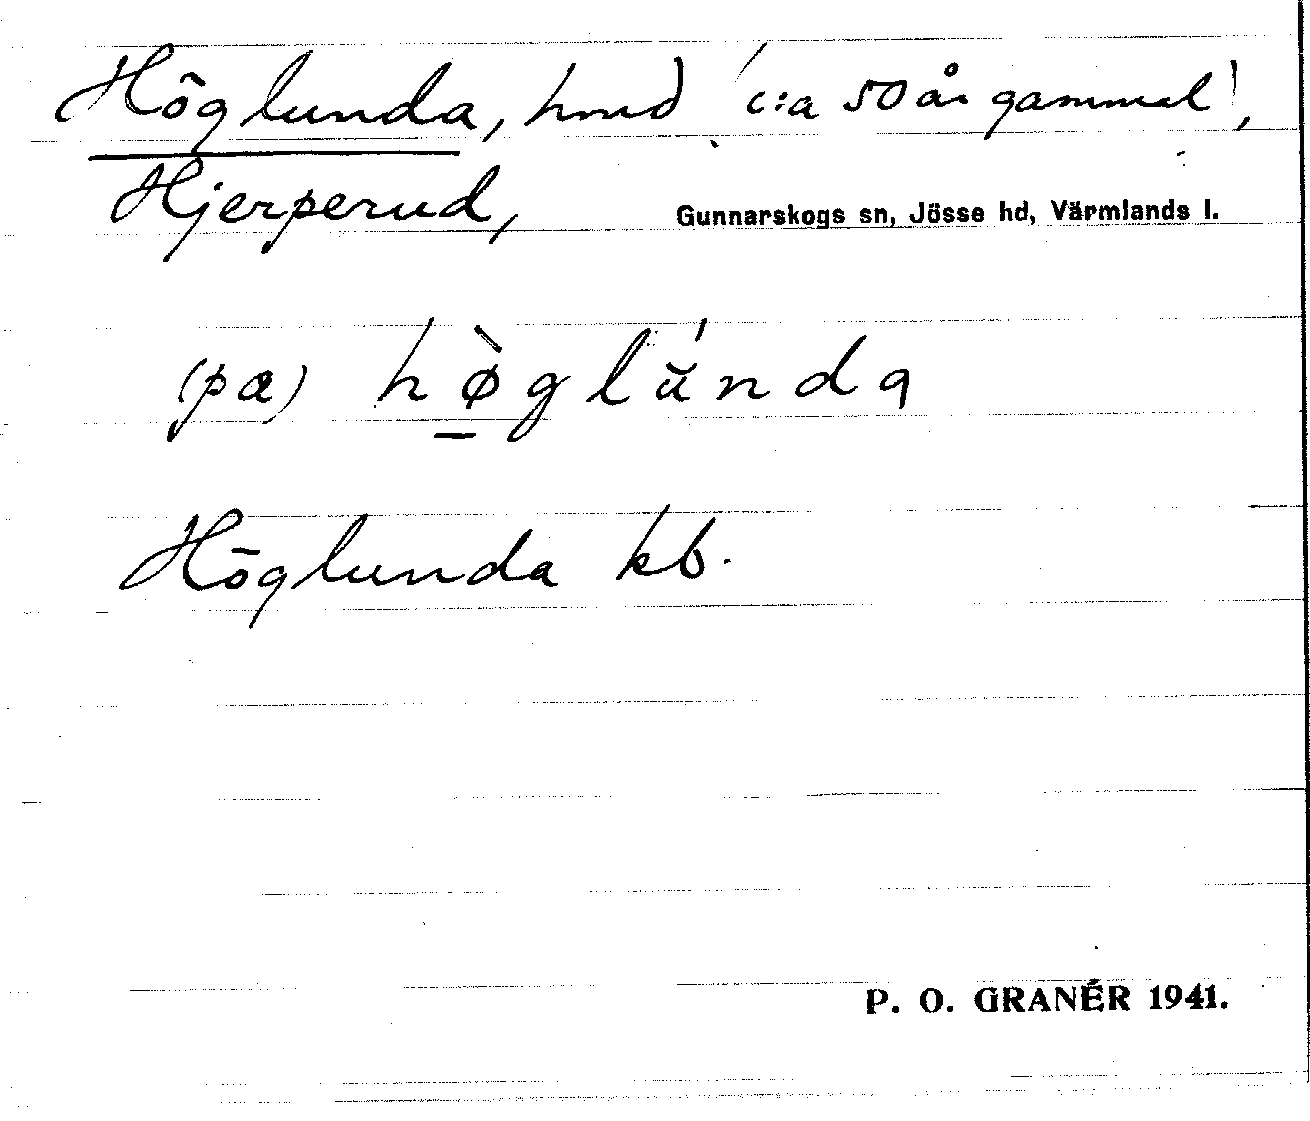 Höglunda, hmd (c:a 50 år gammal),
Hjerperud, Gunnarskogs sn, Jösse hd, Värmlands l.
(pα) hø̠̀glǘnda
Höglunda kb.
P. O. GRANÉR 1941.